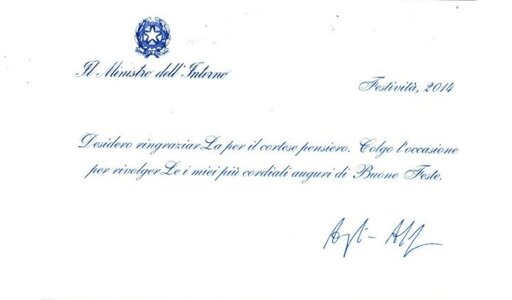 Il Ministro dell'Interno
Festività, 2014
Desidero ringraziarLa per il cortese pensiero. Colgo l'occasione
per rivolgerLe i miei più cordiali auguri di Buone Feste.